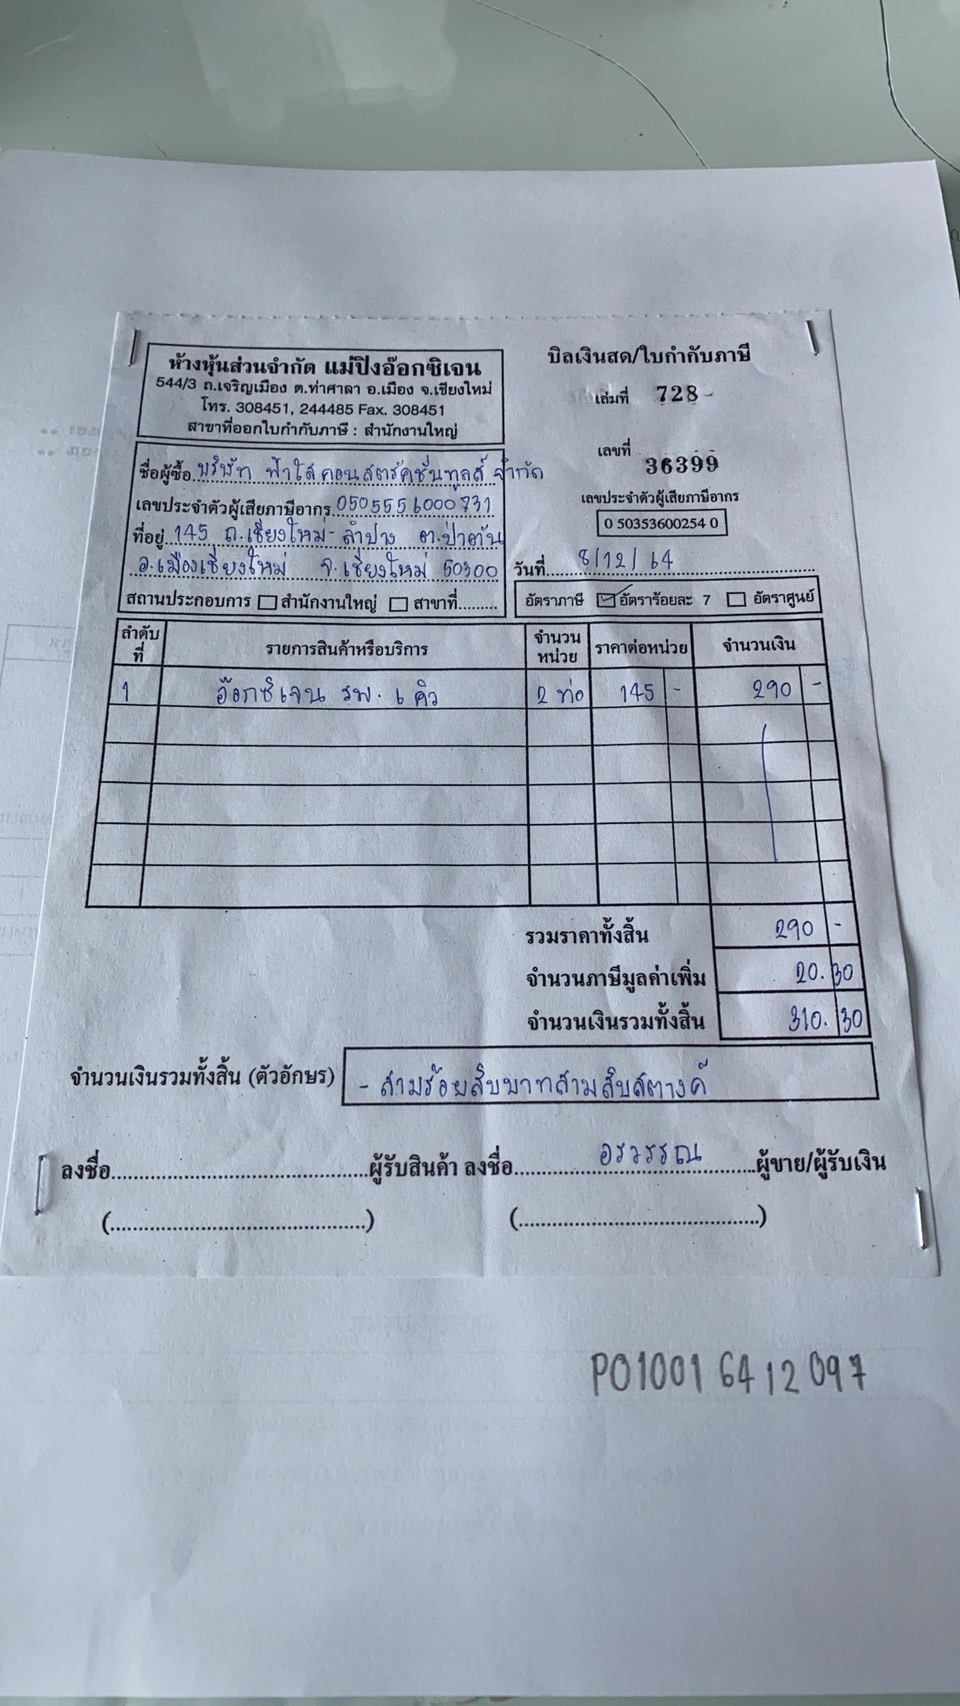 ห้างหุ้นส่วนจำกัด แม่ปิงอ๊อกซิเจน
544/3 ถ.เจริญเมือง ต.ท่าศาลา อ.เมือง จ.เชียงใหม่
โทร. 308451, 244485 Fax. 308451
สาขาที่ออกใบกำกับภาษี : สำนักงานใหญ่
บิลเงินสด/ใบกำกับภาษี
เล่มที่ 728-
เลขที่ 36399
เลขประจำตัวผู้เสียภาษีอากร
0 50353600254 0
ชื่อผู้ซื้อ บริษัท ฟ้าใสคอนสตรัคชั่นทูลส์ จำกัด
เลขประจำตัวผู้เสียภาษีอากร 0505556000731
ที่อยู่ 145 ถ.เชียงใหม่-ลำปาง ต.ป่าตัน
อ.เมืองเชียงใหม่ จ.เชียงใหม่ 50300
วันที่ 8/12/64
สถานประกอบการ สำนักงานใหญ่ สาขาที่
อัตราภาษี อัตราร้อยละ 7 อัตราศูนย์
ลำดับที่ รายการสินค้าหรือบริการ จำนวนหน่วย ราคาต่อหน่วย จำนวนเงิน
1 อ๊อกซิเจน รพ. 6 คิว 2 ท่อ 145 - 290 -
รวมราคาทั้งสิ้น 290 -
จำนวนภาษีมูลค่าเพิ่ม 20.30
จำนวนเงินรวมทั้งสิ้น 310.30
จำนวนเงินรวมทั้งสิ้น (ตัวอักษร) - สามร้อยสิบบาทสามสิบสตางค์
ลงชื่อ ผู้รับสินค้า ลงชื่อ อรวรรณ ผู้ขาย/ผู้รับเงิน
PO10016412097